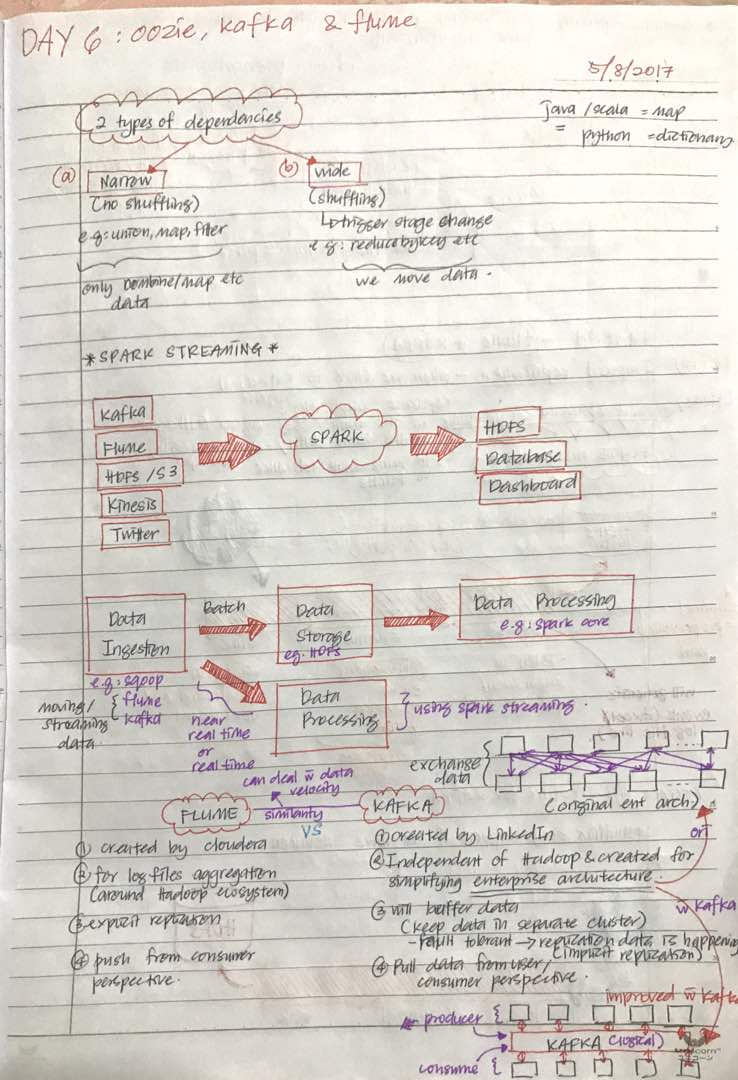 DAY 6 : oozie, kafka & flume
5/8/2017
2 types of dependencies
java / scala = map
= python = dictionary
(a) Narrow
(no shuffling)
e.g: union, map, filter
only combine/map etc
data
(b) wide
(shuffling)
↳ trigger stage change
e.g: reducebykey etc
we move data.
* SPARK STREAMING *
Kafka
Flume
HDFS / S3
Kinesis
Twitter
SPARK
HDFS
Database
Dashboard
Data
Ingestion
Batch
Data
Storage
eg. HDFS
Data Processing
e.g: spark core
e.g: sqoop
flume
kafka
moving/
streaming
data.
near
real time
or
real time
Data
Processing
using spark streaming.
exchange
data
(original ent arch)
can deal w̄ data
velocity
FLUME
similarity
KAFKA
VS
① created by cloudera
② for log files aggregation
(around Hadoop ecosystem)
③ explicit replication
④ push from consumer
perspective.
① created by LinkedIn
② Independent of Hadoop & created for
simplifying enterprise architecture.
③ will buffer data
(keep data in separate cluster)
- fault tolerant → replication data is happening
(implicit replication)
④ Pull data from user/
consumer perspective.
ori
w̄ kafka
improved w̄ kafka
producer
KAFKA (logical)
consume